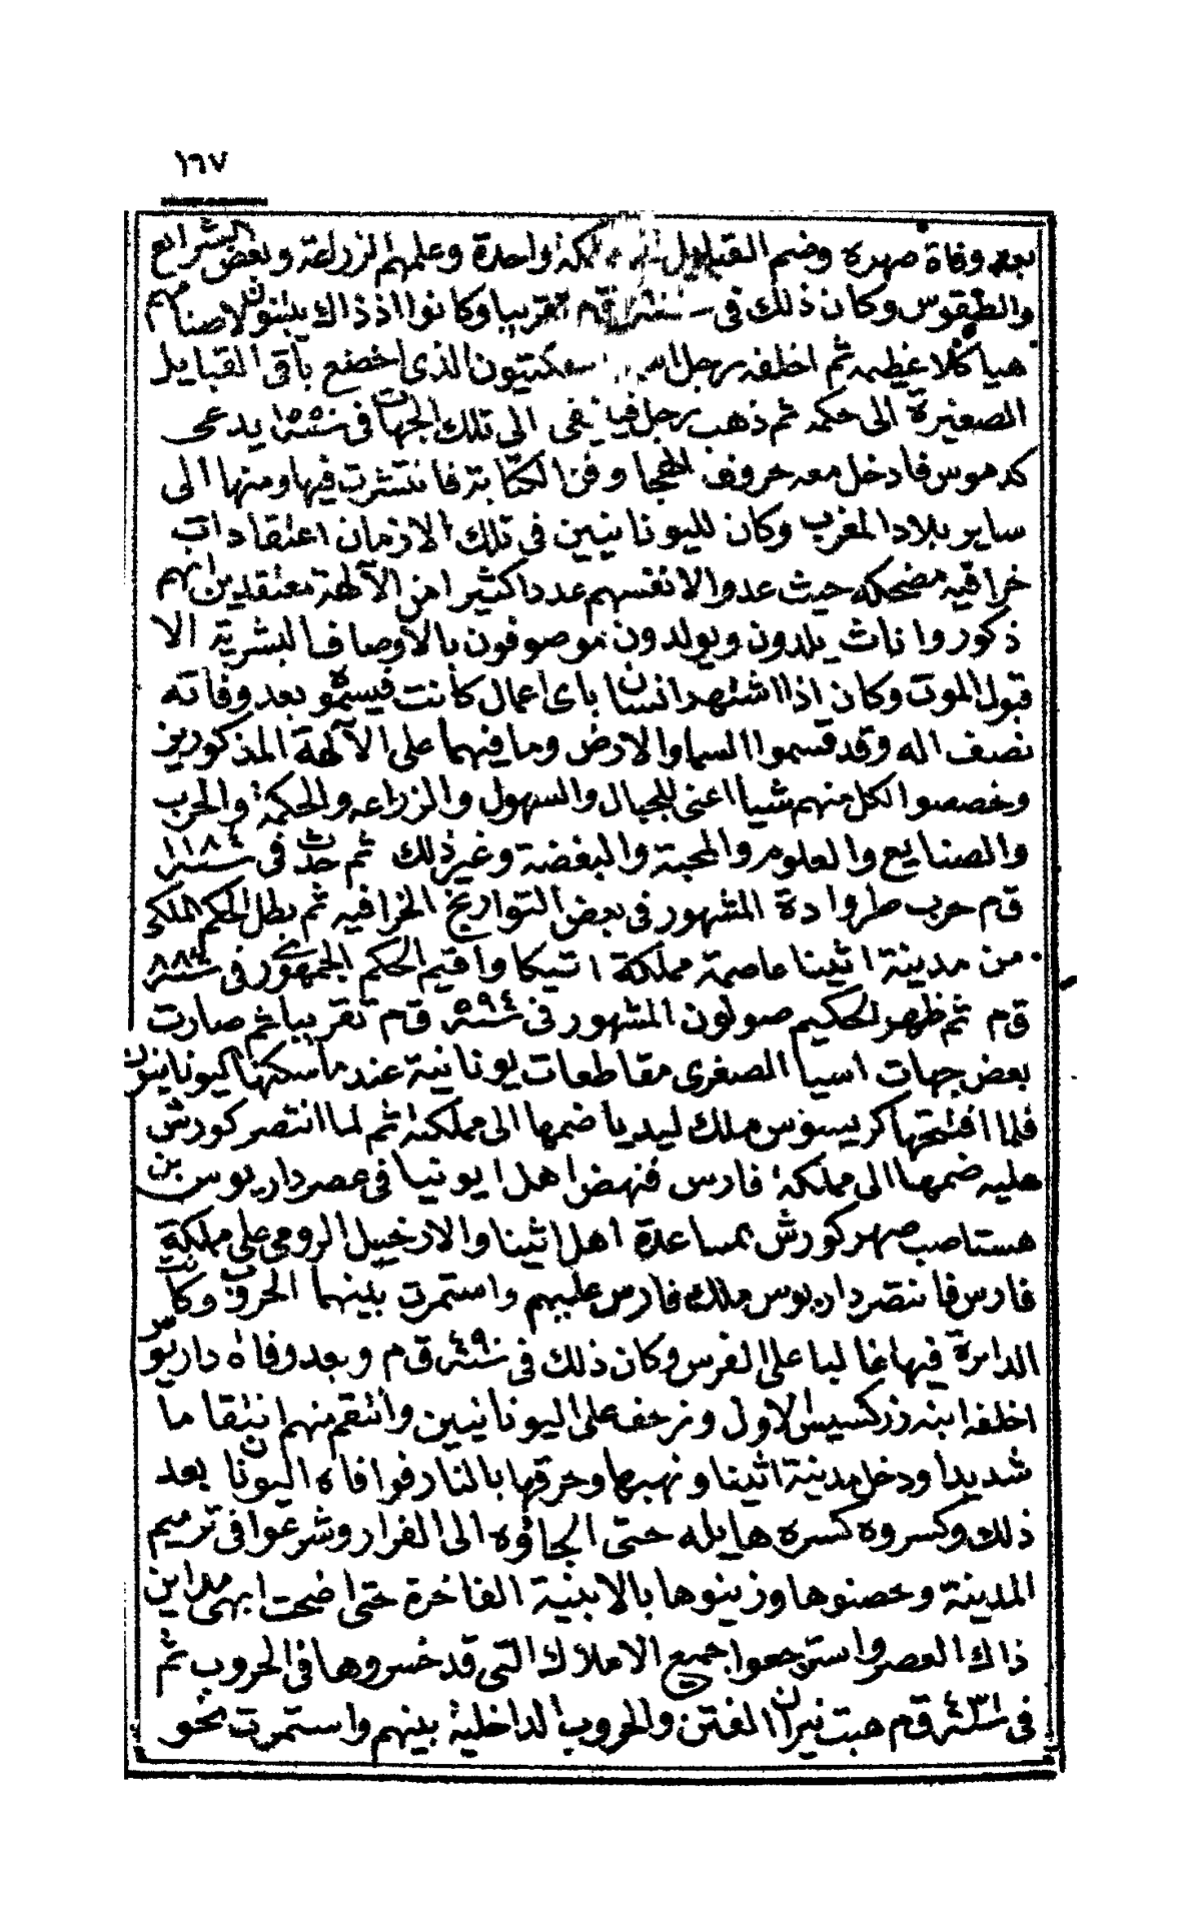 ١٦٧
بعد وفاة صهره وضم القبايل مملكة واحدة وعلمهم الزراعة وبعض الشرايع
والطقوس وكان ذلك فى سنة ق م تقريبا وكانوا اذ ذاك يبنون لاصنامهم
هياكلا عظيمه ثم اخلفه رجل اسمه مفكتيون الذى اخضع باقى القبايل
الصغيرة الى حكمه ثم ذهب رجل فينيقى الى تلك الجهات فى سنة ١٥٥ يدعى
كدموس فادخل معه حروف الهجا وفن الكتابة فانتشرت فيها ومنها الى
ساير بلاد المغرب وكان لليونانيين فى تلك الازمان اعتقادات
خرافيه مضحكه حيث عدوا لانفسهم عددا كثيرا من الآلهة معتقدين انهم
ذكور واناث يلدون ويولدون موصوفون بالاوصاف البشرية الا
قبول الموت وكان اذا اشتهر انسان باى اعمال كانت فيسموه بعد وفاته
نصف اله وقد قسموا السما والارض وما فيهما على الآلهة المذكورين
وخصصوا لكل منهم شيا اعنى للجبال والسهول والزراعه والحكمة والحرب
والصنايع والعلوم والمحبة والبغضة وغير ذلك ثم حدث فى سنة ١١٨٤
ق م حرب طروادة المشهور فى بعض التواريخ الخرافيه ثم بطل الحكم الملكى
من مدينة اثينا عاصمة مملكة اتيكا واقيم الحكم الجمهورى فى سنة ٨٨٤
ق م ثم ظهر الحكيم صولون المشهور فى سنة ٥٩٤ ق م تقريبا ثم صارت
بعض جهات اسيا الصغرى مقاطعات يونانية عندما سكنها اليونانيون
فلما افتتحها كريسوس ملك ليديا ضمها الى مملكته ثم لما انتصر كورش
عليه ضمها الى مملكة فارس فنهض اهل ايونيا فى عصر داريوس بن
هستاصب صهر كورش بمساعدة اهل اثينا والارخبيل الرومى على مملكة
فارس فانتصر داريوس ملك فارس عليهم واستمرت بينهما الحروب وكانت
الدايرة فيها غالبا على الفرس وكان ذلك فى سنة ٤٩٠ ق م وبعد وفاة داريوس
اخلفه ابنه زركسيس الاول وزحف على اليونانيين وانتقم منهم انتقاما
شديدا ودخل مدينة اثينا ونهبها وحرقها بالنار فوافاه اليونان بعد
ذلك وكسروه كسره هايله حتى الجاؤه الى الفرار وشرعوا فى ترميم
المدينة وحصنوها وزينوها بالابنية الفاخرة حتى اضحت ابهى مداين
ذاك العصر واسترجعوا جميع الاملاك التى قد خسروها فى الحروب ثم
فى سنة ٤٣١ ق م هبت نيران الفتن والحروب الداخلية بينهم واستمرت نحو